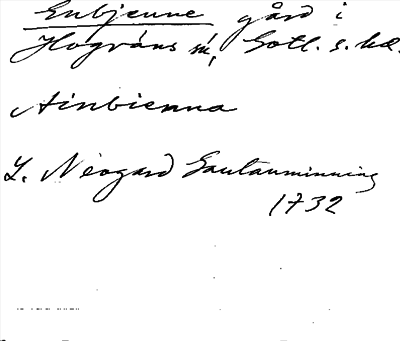 Enbjenne gård i
Hogräns sn, Gotl. s. hd.
Ainbienna
L. Neogard Gautauminning
1732